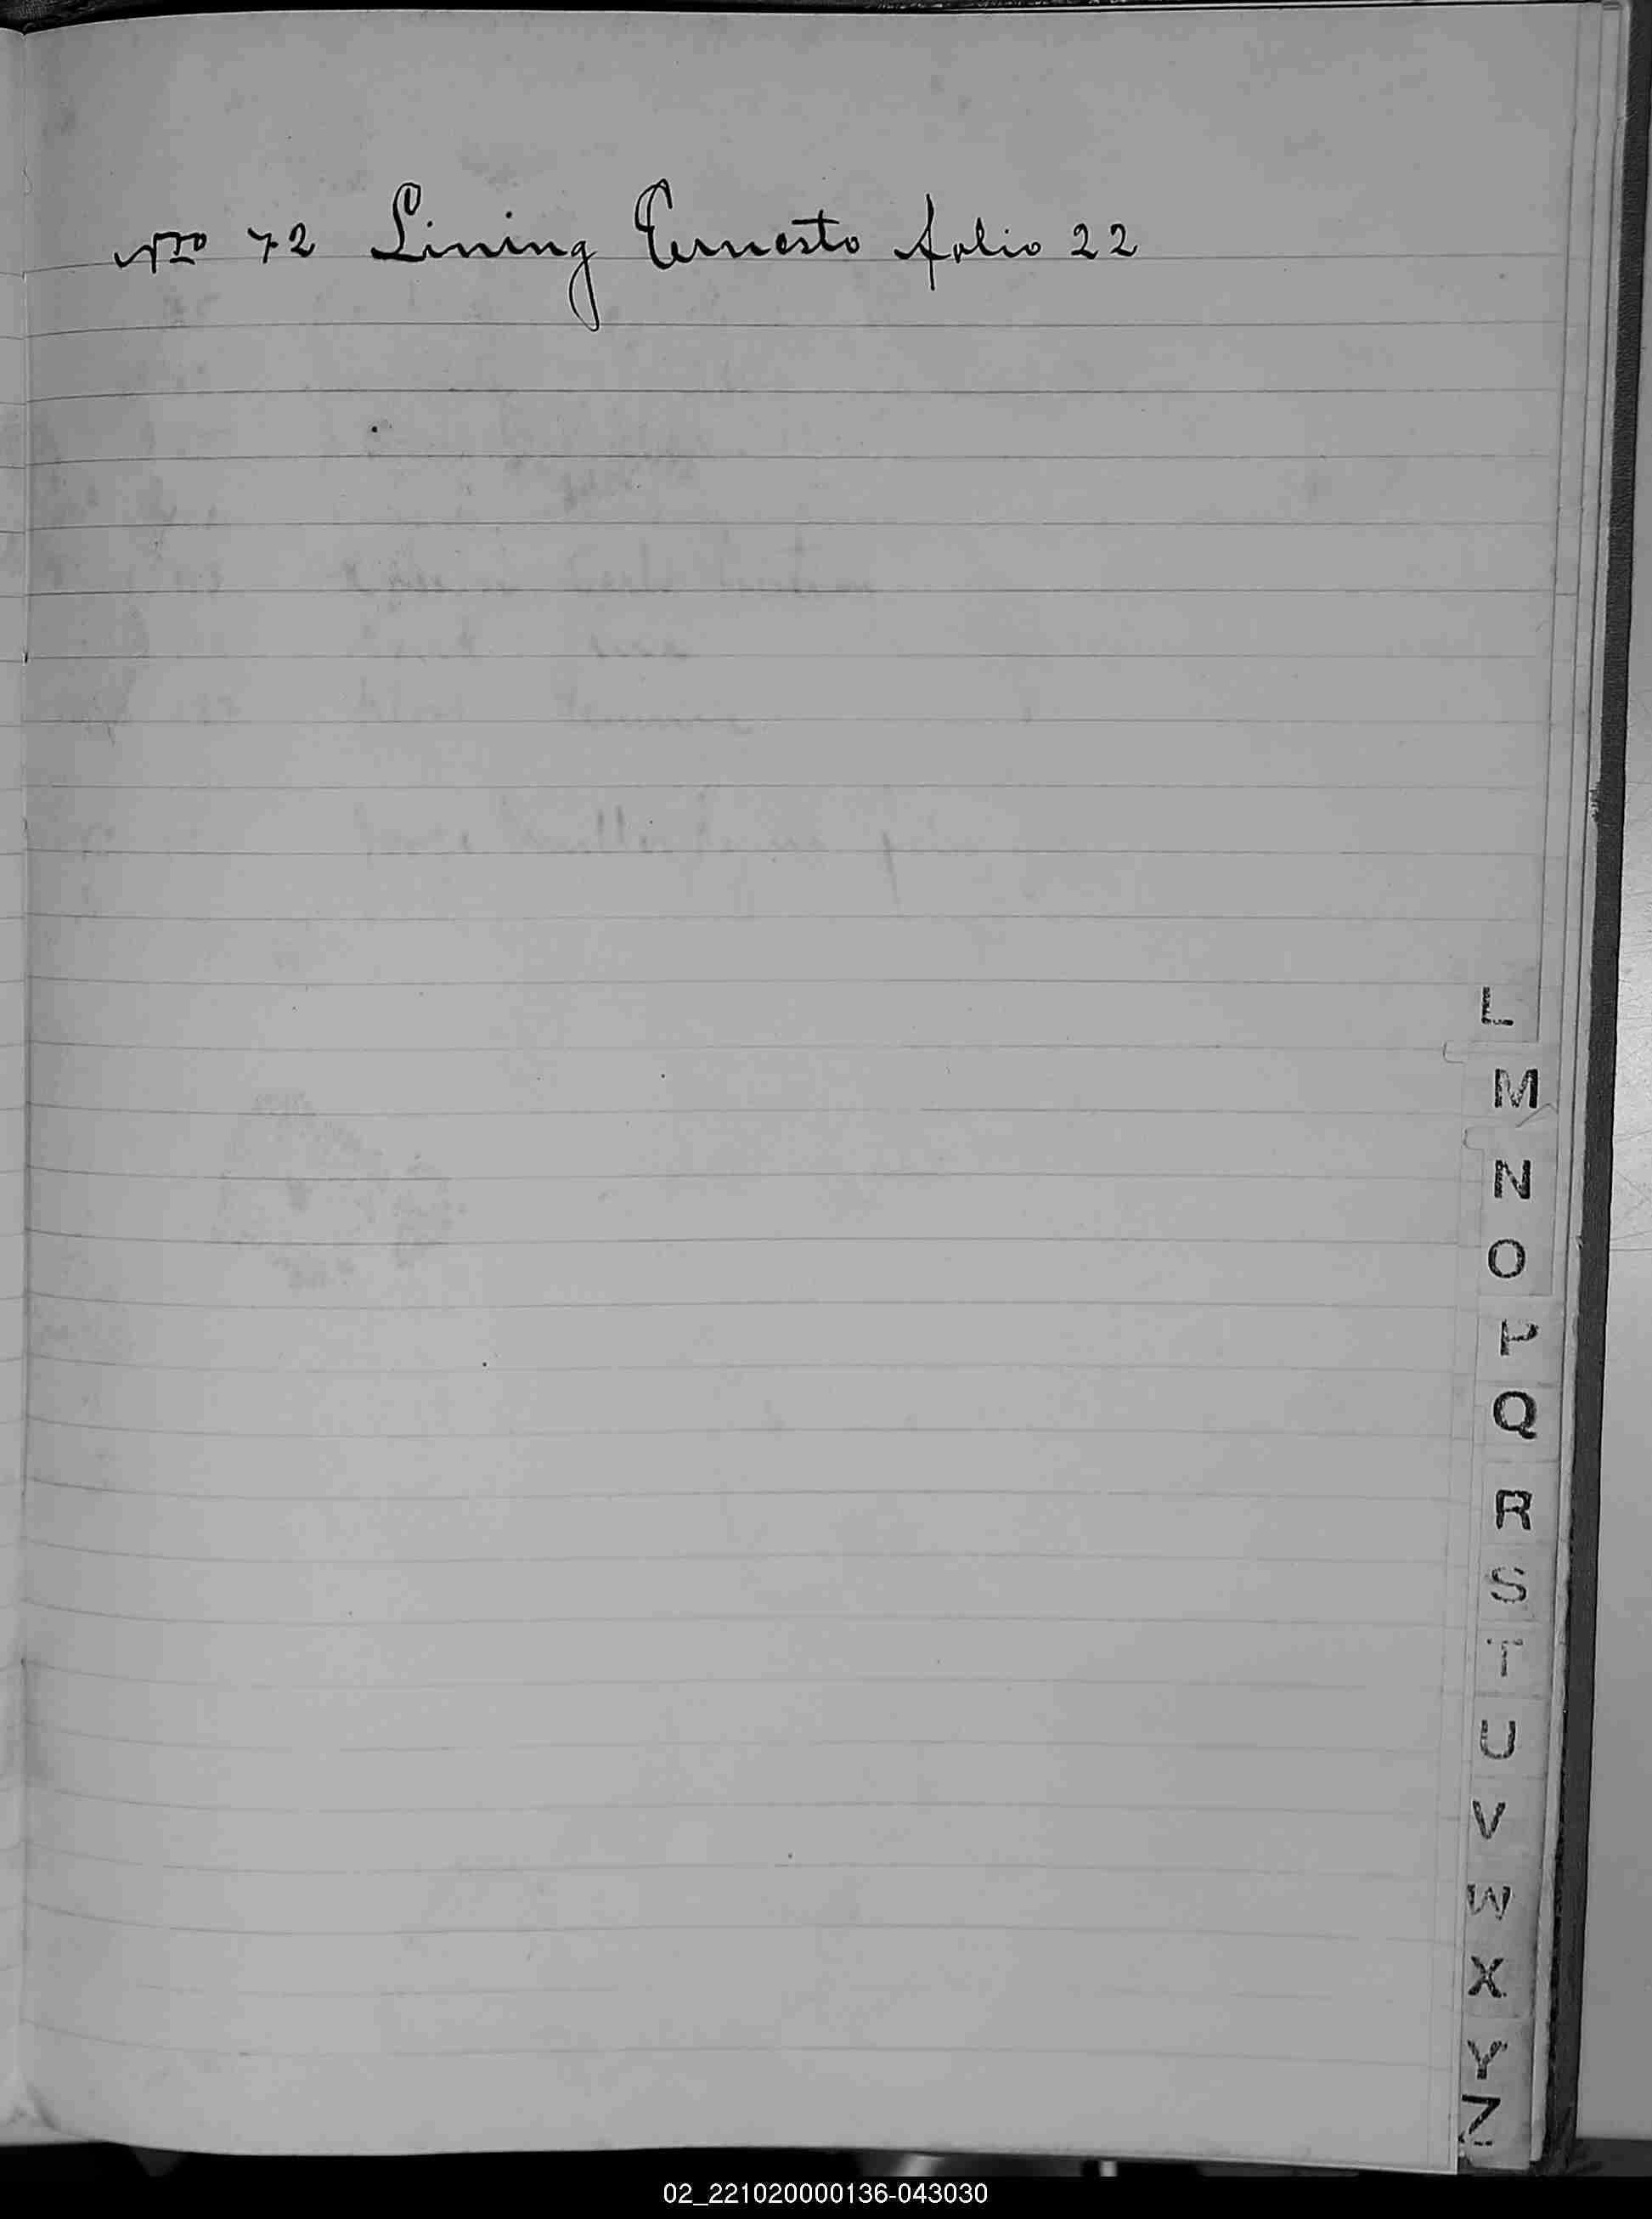 No 72 Lining Ernesto folio 22
L
M
N
O
P
Q
R
S
T
U
V
W
X
Y
Z
02_221020000136-043030